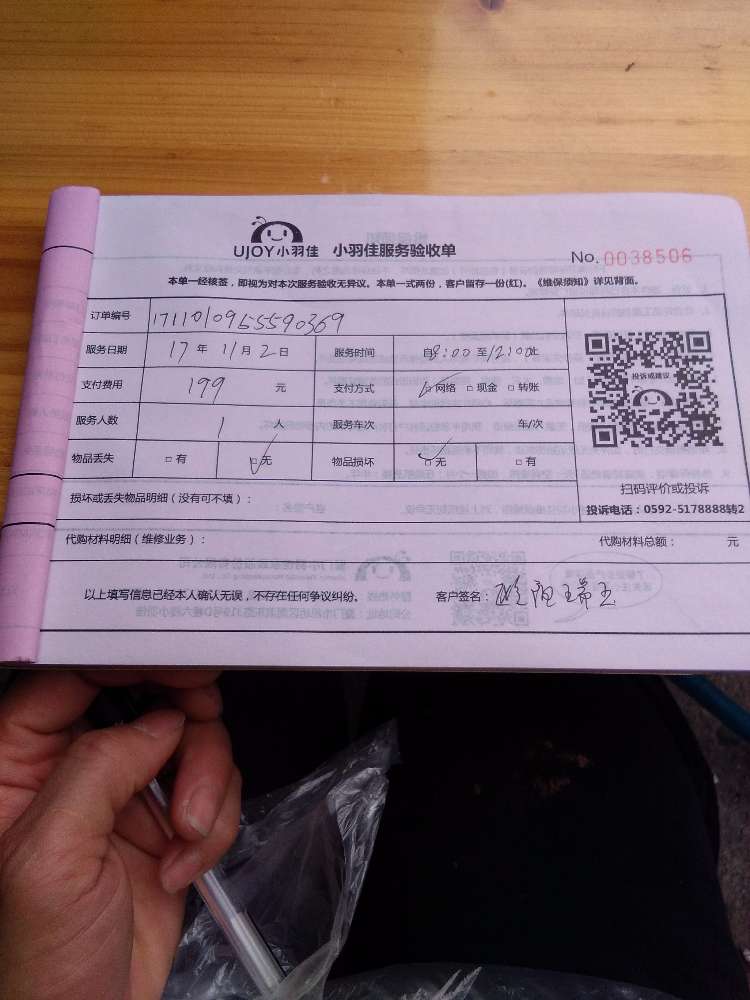 UJOY小羽佳 小羽佳服务验收单 No.0038506
本单一经核签，即视为对本次服务验收无异议。本单一式两份，客户留存一份(红)。《维保须知》详见背面。
订单编号 1711010955590369
服务日期 17年11月2日 服务时间 自8:00至12:00止
支付费用 199 元 支付方式 □网络 □现金 □转账
服务人数 1 人 服务车次 车/次
物品丢失 □有 □无 物品损坏 □无 □有
投诉或建议
扫码评价或投诉
投诉电话：0592-5178888转2
损坏或丢失物品明细（没有可不填）：
代购材料明细（维修业务）： 代购材料总额： 元
以上填写信息已经本人确认无误，不存在任何争议纠纷。 客户签名：欧阳瑞玉